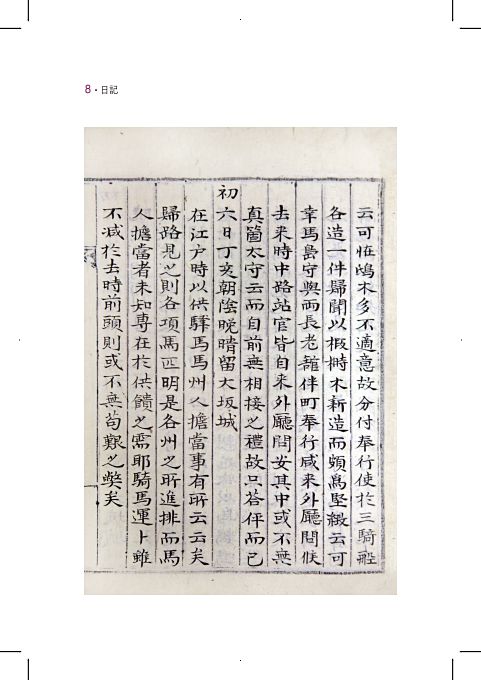 8·日記
云可恠鴟木多不適意故分付奉行使於三騎船
各造一件歸聞以椵樹木新造而頗爲堅緻云可
幸馬島守與兩長老舘伴町奉行咸来外廳問候
去来時中路站官皆自来外廳問安其中或不無
眞箇太守云而自前無相接之禮故只答伻而已
初六日丁亥朝陰晩晴留大坂城
在江戶時以供驛馬馬州人擔當事有所云云矣
歸路見之則各項馬匹明是各州之所進排而馬
人擔當者未知專在於供饋之需耶騎馬運卜雖
不减於去時前頭則或不無苟艱之獘矣